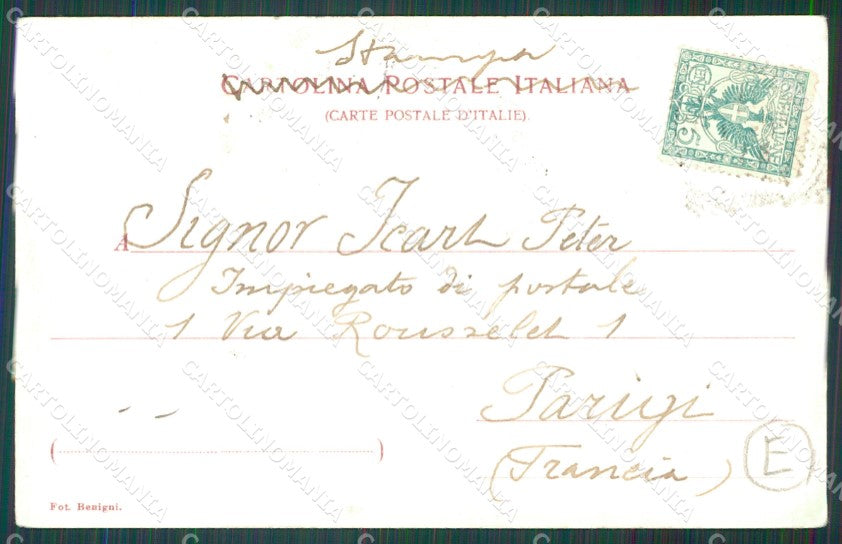 Stampa
CARTOLINA POSTALE ITALIANA
(CARTE POSTALE D'ITALIE).
A Signor Icart Petér
Impiegato di postale
1 Via Rousselet 1
Parigi
(Francia)
E
Fot. Benigni.
POSTE ITALIANE
5
CARTOLINOMANIA